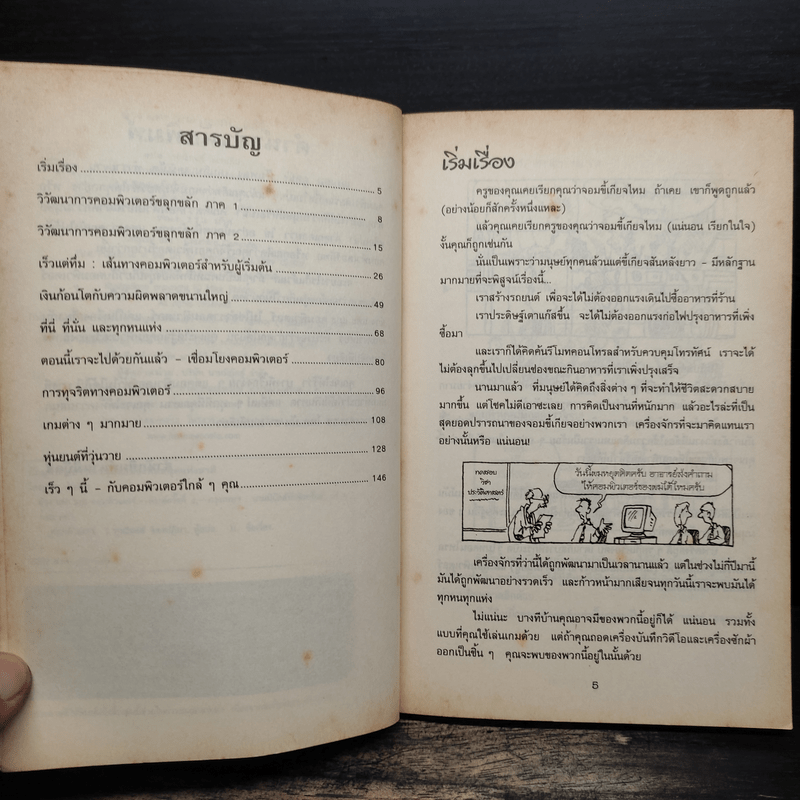 สารบัญ
เริ่มเรื่อง 5
วิวัฒนาการคอมพิวเตอร์ขลุกขลัก ภาค 1 8
วิวัฒนาการคอมพิวเตอร์ขลุกขลัก ภาค 2 15
เร็วแต่ทึ่ม : เส้นทางคอมพิวเตอร์สำหรับผู้เริ่มต้น 26
เงินก้อนโตกับความผิดพลาดขนานใหญ่ 49
ที่นี่ ที่นั่น และทุกหนแห่ง 68
ตอนนี้เราจะไปด้วยกันแล้ว – เชื่อมโยงคอมพิวเตอร์ 80
การทุจริตทางคอมพิวเตอร์ 96
เกมต่าง ๆ มากมาย 108
หุ่นยนต์ที่วุ่นวาย 128
เร็ว ๆ นี้ – กับคอมพิวเตอร์ใกล้ ๆ คุณ 146
เริ่มเรื่อง
ครูของคุณเคยเรียกคุณว่าจอมขี้เกียจไหม ถ้าเคย เขาก็พูดถูกแล้ว
(อย่างน้อยก็สักครั้งหนึ่งแหละ)
แล้วคุณเคยเรียกครูของคุณว่าจอมขี้เกียจไหม (แน่นอน เรียกในใจ)
งั้นคุณก็ถูกเช่นกัน
นั่นเป็นเพราะว่ามนุษย์ทุกคนล้วนแต่ขี้เกียจสันหลังยาว – มีหลักฐาน
มากมายที่จะพิสูจน์เรื่องนี้...
เราสร้างรถยนต์ เพื่อจะได้ไม่ต้องออกแรงเดินไปซื้ออาหารที่ร้าน
เราประดิษฐ์เตาแก๊สขึ้น จะได้ไม่ต้องออกแรงก่อไฟปรุงอาหารที่เพิ่ง
ซื้อมา
และเราก็ได้คิดค้นรีโมทคอนโทรลสำหรับควบคุมโทรทัศน์ เราจะได้
ไม่ต้องลุกขึ้นไปเปลี่ยนช่องขณะกินอาหารที่เราเพิ่งปรุงเสร็จ
นานมาแล้ว ที่มนุษย์ได้คิดถึงสิ่งต่าง ๆ ที่จะทำให้ชีวิตสะดวกสบาย
มากขึ้น แต่โชคไม่ดีเอาซะเลย การคิดเป็นงานที่หนักมาก แล้วอะไรล่ะที่เป็น
สุดยอดปรารถนาของจอมขี้เกียจอย่างพวกเรา เครื่องจักรที่จะมาคิดแทนเรา
อย่างนั้นหรือ แน่นอน!
ทดสอบ
วิชา
ประวัติศาสตร์
วันนี้ผมหยุดคิดครับ อาจารย์ส่งคำถาม
ให้คอมพิวเตอร์ของผมได้ไหมครับ
เครื่องจักรที่ว่านี้ได้ถูกพัฒนามาเป็นเวลานานแล้ว แต่ในช่วงไม่กี่ปีมานี้
มันได้ถูกพัฒนาอย่างรวดเร็ว และก้าวหน้ามากเสียจนทุกวันนี้เราจะพบมันได้
ทุกหนทุกแห่ง
ไม่แน่นะ บางทีบ้านคุณอาจมีของพวกนี้อยู่ก็ได้ แน่นอน รวมทั้ง
แบบที่คุณใช้เล่นเกมด้วย แต่ถ้าคุณถอดเครื่องบันทึกวิดีโอและเครื่องซักผ้า
ออกเป็นชิ้น ๆ คุณจะพบของพวกนี้อยู่ในนั้นด้วย
5